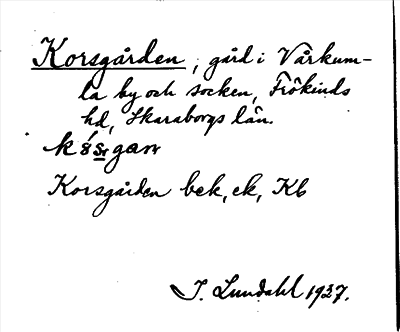 Korsgården, gård i Vårkum-
la by och socken, Frökinds
hd, Skaraborgs län.
Korsgården bek, ek, Kb
I. Lundahl 1927.